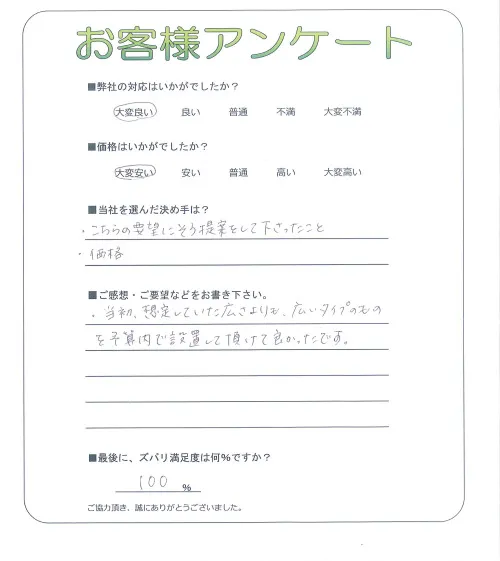 お客様アンケート
■弊社の対応はいかがでしたか？
大変良い 良い 普通 不満 大変不満
■価格はいかがでしたか？
大変安い 安い 普通 高い 大変高い
■当社を選んだ決め手は？
・こちらの要望にそう提案をして下さったこと
・価格
■ご感想・ご要望などをお書き下さい。
・当初、想定していた広さよりも、広いタイプのもの
を予算内で設置して頂けて良かったです。
■最後に、ズバリ満足度は何％ですか？
100 %
ご協力頂き、誠にありがとうございました。